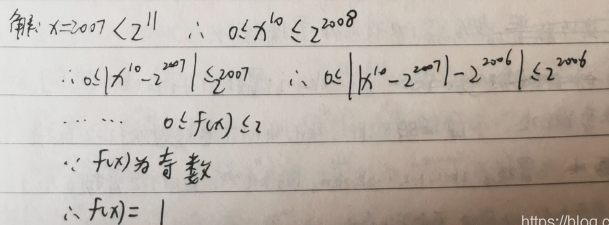 解: x=2007 < 2^11 ∴ 0≤x^10 ≤ 2^2008
∴ 0≤|x^10-2^2007| ≤2^2007 ∴ 0≤||x^10-2^2007|-2^2006| ≤2^2006
…… 0≤f(x)≤2
∵ f(x)为奇数
∴ f(x)= 1
https://blog.c